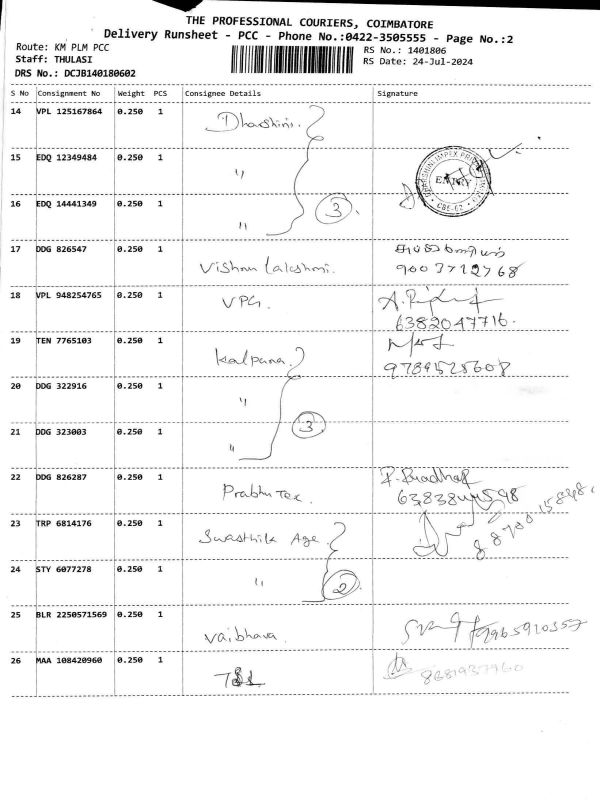 THE PROFESSIONAL COURIERS, COIMBATORE
Delivery Runsheet - PCC - Phone No.:0422-3505555 - Page No.:2
Route: KM PLM PCC RS No.: 1401806
Staff: THULASI RS Date: 24-Jul-2024
DRS No.: DCJB140180602
S No Consignment No Weight PCS Consignee Details Signature
14 VPL 125167864 0.250 1 Dharshini.
15 EDQ 12349484 0.250 1 "
ENTRY
CBE-62
16 EDQ 14441349 0.250 1 " 3
17 DDG 826547 0.250 1 Vishnu lakshmi. 9003712768
18 VPL 948254765 0.250 1 VPG. 6382047716.
19 TEN 7765103 0.250 1 Kalpana. 9789525608
20 DDG 322916 0.250 1 "
21 DDG 323003 0.250 1 " 3
22 DDG 826287 0.250 1 Prabhu Tex.
23 TRP 6814176 0.250 1 Swasthik Age.
24 STY 6077278 0.250 1 " 2
25 BLR 2250571569 0.250 1 Vaibhava.
26 MAA 108420960 0.250 1 8681937960